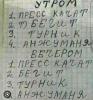 УТРОМ
1. ПРЕСС КАЧАТ
2. БЕГИТ
3. ТУРНИК
4. АНЖУМАНЯ
ВЕЧЕРОМ
1. ПРЕСС КАЧАТ
2. БЕГИТ
3. ТУРНИК
АНЖУМАНЯ